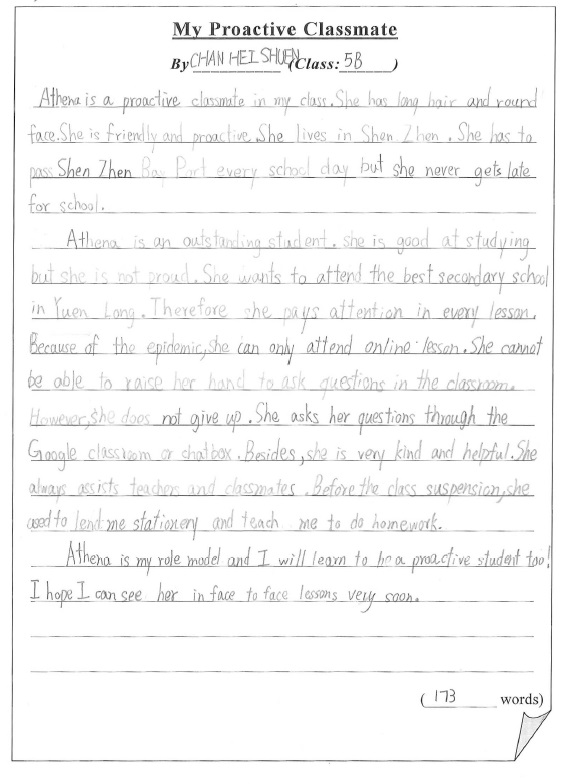 My Proactive Classmate
By CHAN HEI SHUEN (Class: 5B )
Athena is a proactive classmate in my class. She has long hair and round
face. She is friendly and proactive. She lives in Shen Zhen. She has to
pass Shen Zhen Bay Port every school day but she never gets late
for school.
Athena is an outstanding student. she is good at studying
but she is not proud. She wants to attend the best secondary school
in Yuen Long. Therefore she pays attention in every lesson.
Because of the epidemic, she can only attend online lesson. She cannot
be able to raise her hand to ask questions in the classroom.
However, she does not give up. She asks her questions through the
Google classroom or chatbox. Besides, she is very kind and helpful. She
always assists teachers and classmates. Before the class suspension, she
used to lend me stationery and teach me to do homework.
Athena is my role model and I will learn to be a proactive student too!
I hope I can see her in face to face lessons very soon.
( 173 words)